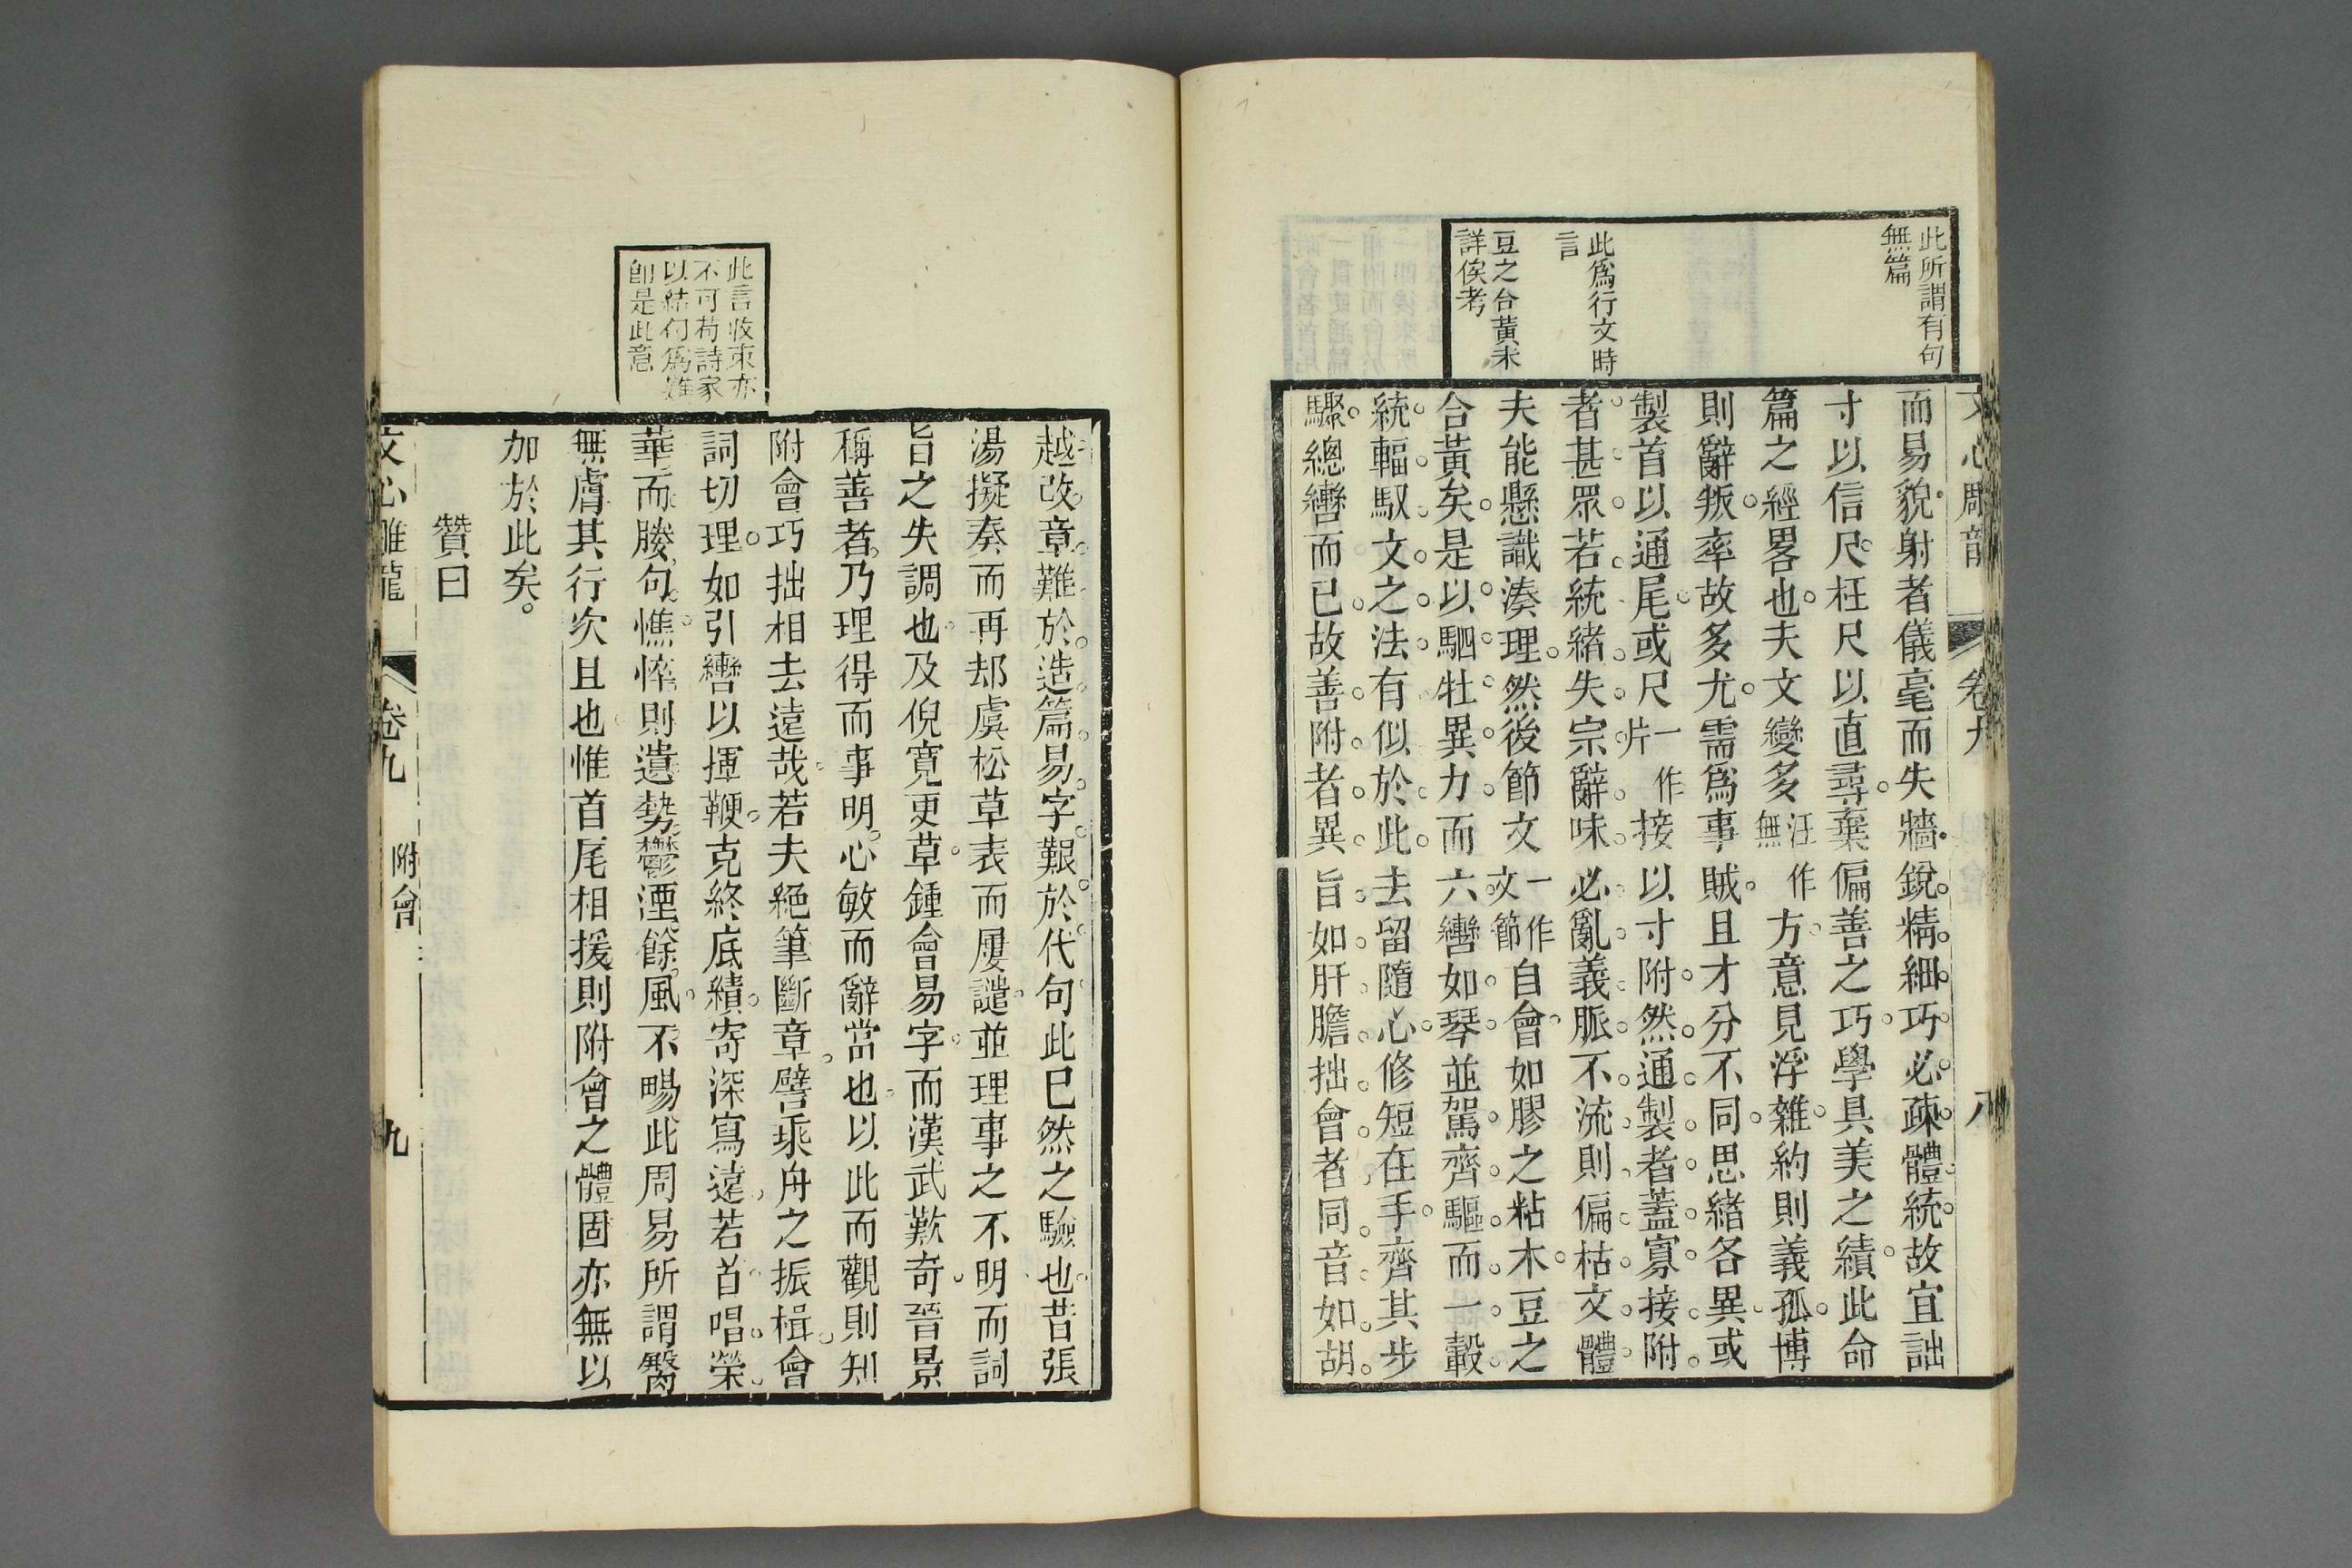 此所謂有句
無篇
此爲行文時
言
豆之合黃未
詳俟考
文心雕龍 卷九 八
而易貌射者儀毫而失牆銳精細巧必疎體統故宜詘
寸以信尺枉尺以直尋棄偏善之巧學具美之績此命
篇之經畧也夫文變多汪作無方意見浮雜約則義孤博
則辭叛率故多尤需爲事賊且才分不同思緒各異或
製首以通尾或尺一作片接以寸附然通製者蓋寡接附
者甚眾若統緒失宗辭味必亂義脈不流則偏枯文體
夫能懸識湊理然後節文一作文節自會如膠之粘木豆之
合黃矣是以駟牡異力而六轡如琴並駕齊驅而一轂
統輻馭文之法有似於此去留隨心修短在手齊其步
驟總轡而已故善附者異旨如肝膽拙會者同音如胡
此言收束亦
不可苟詩家
以結句爲難
卽是此意
越改章難於造篇易字艱於代句此已然之驗也昔張
湯擬奏而再却虞松草表而屢譴並理事之不明而詞
旨之失調也及倪寬更草鍾會易字而漢武歎奇晉景
稱善者乃理得而事明心敏而辭當也以此而觀則知
附會巧拙相去遠哉若夫絕筆斷章譬乘舟之振楫會
詞切理如引轡以揮鞭克終底績寄深寫遠若首唱榮
華而媵句憔悴則遺勢鬱湮餘風不暢此周易所謂臀
無膚其行次且也惟首尾相援則附會之體固亦無以
加於此矣
贊曰
文心雕龍 卷九 附會 九